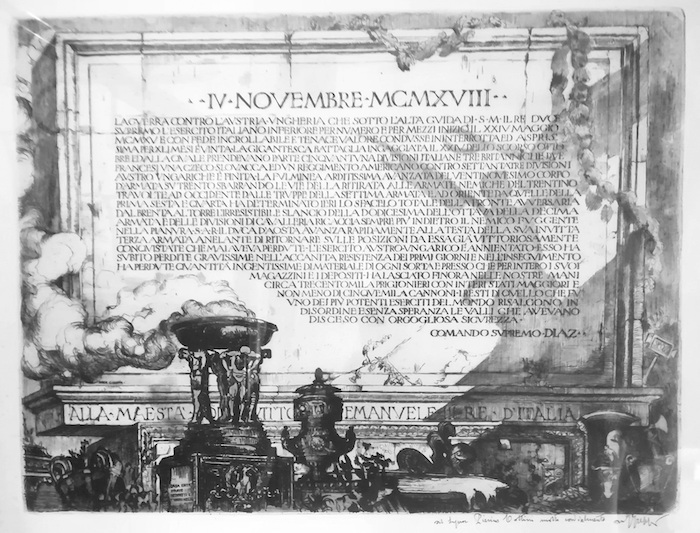 ··IV·NOVEMBRE·MCMXVIII··
LA GVERRA CONTRO L'AVSTRIA-VNGHERIA CHE SOTTO L'ALTA GVIDA DI·S·M·IL RE DVCE
SVPREMO L'ESERCITO ITALIANO INFERIORE PER NVMERO E PER MEZZI INIZIÒ IL XXIV MAGGIO
MCMXV E CON FEDE INCROLLABILE E TENACE VALORE CONDVSSE ININTERROTTA ED ASPRIS
SIMA PER XLI MESI È VINTA·LA GIGANTESCA BATTAGLIA INGAGGIATA IL XXIV DELLO SCORSO OTTO
BRE ED ALLA QVALE PRENDEVANO PARTE CINQVANTVNA DIVISIONI ITALIANE TRE BRITANNICHE DVE
FRANCESI VNA CZECO SLOVACCA ED VN REGGIMENTO AMERICANO CONTRO SETTANTATRE DIVISIONI
AVSTRO VNGARICHE È FINITA·LA FVLMINEA ARDITISSIMA AVANZATA DEL VENTINOVESIMO CORPO
D'ARMATA SV TRENTO SBARRANDO LE VIE DELLA RITIRATA ALLE ARMATE NEMICHE DEL TRENTINO
TRAVOLTE AD OCCIDENTE DALLE TRVPPE DELLA SETTIMA ARMATA E AD ORIENTE DA QVELLE DELLA
PRIMA SESTA E QVARTA HA DETERMINATO IERI LO SFACELO TOTALE DELLA FRONTE AVVERSARIA
DAL BRENTA AL TORRE L'IRRESISTIBILE SLANCIO DELLA DODICESIMA DELL'OTTAVA DELLA DECIMA
ARMATA E DELLE DIVISIONI DI CAVALLERIA RICACCIA SEMPRE PIÙ INDIETRO IL NEMICO FVGGENTE
NELLA PIANVRA·S·A·R·IL DVCA D'AOSTA AVANZA RAPIDAMENTE ALLA TESTA DELLA SVA INVITTA
TERZA ARMATA ANELANTE DI RITORNARE SVLLE POSIZIONI DA ESSA GIÀ VITTORIOSAMENTE
CONQVISTATE CHE MAI AVEVA PERDVTE·L'ESERCITO AVSTRO VNGARICO È ANNIENTATO·ESSO HA
SVBITO PERDITE GRAVISSIME NELL'ACCANITA RESISTENZA DEI PRIMI GIORNI E NELL'INSEGVIMENTO
HA PERDVTE QVANTITÀ INGENTISSIME DI MATERIALE DI OGNI SORTA E PRESSO CHE PER INTERO I SVOI
MAGAZZINI E I DEPOSITI·HA LASCIATO FINORA NELLE NOSTRE MANI
CIRCA TRECENTOMILA PRIGIONIERI CON INTERI STATI MAGGIORI E
NON MENO DI CINQVEMILA CANNONI·I RESTI DI QVELLO CHE FV
VNO DEI PIV POTENTI ESERCITI DEL MONDO RISALGONO IN
DISORDINE E SENZA SPERANZA LE VALLI CHE AVEVANO
DISCESO CON ORGOGLIOSA SICVREZZA·
COMANDO SVPREMO·DIAZ··
ALLA·MAESTA· EMANVELE RE·D'ITALIA